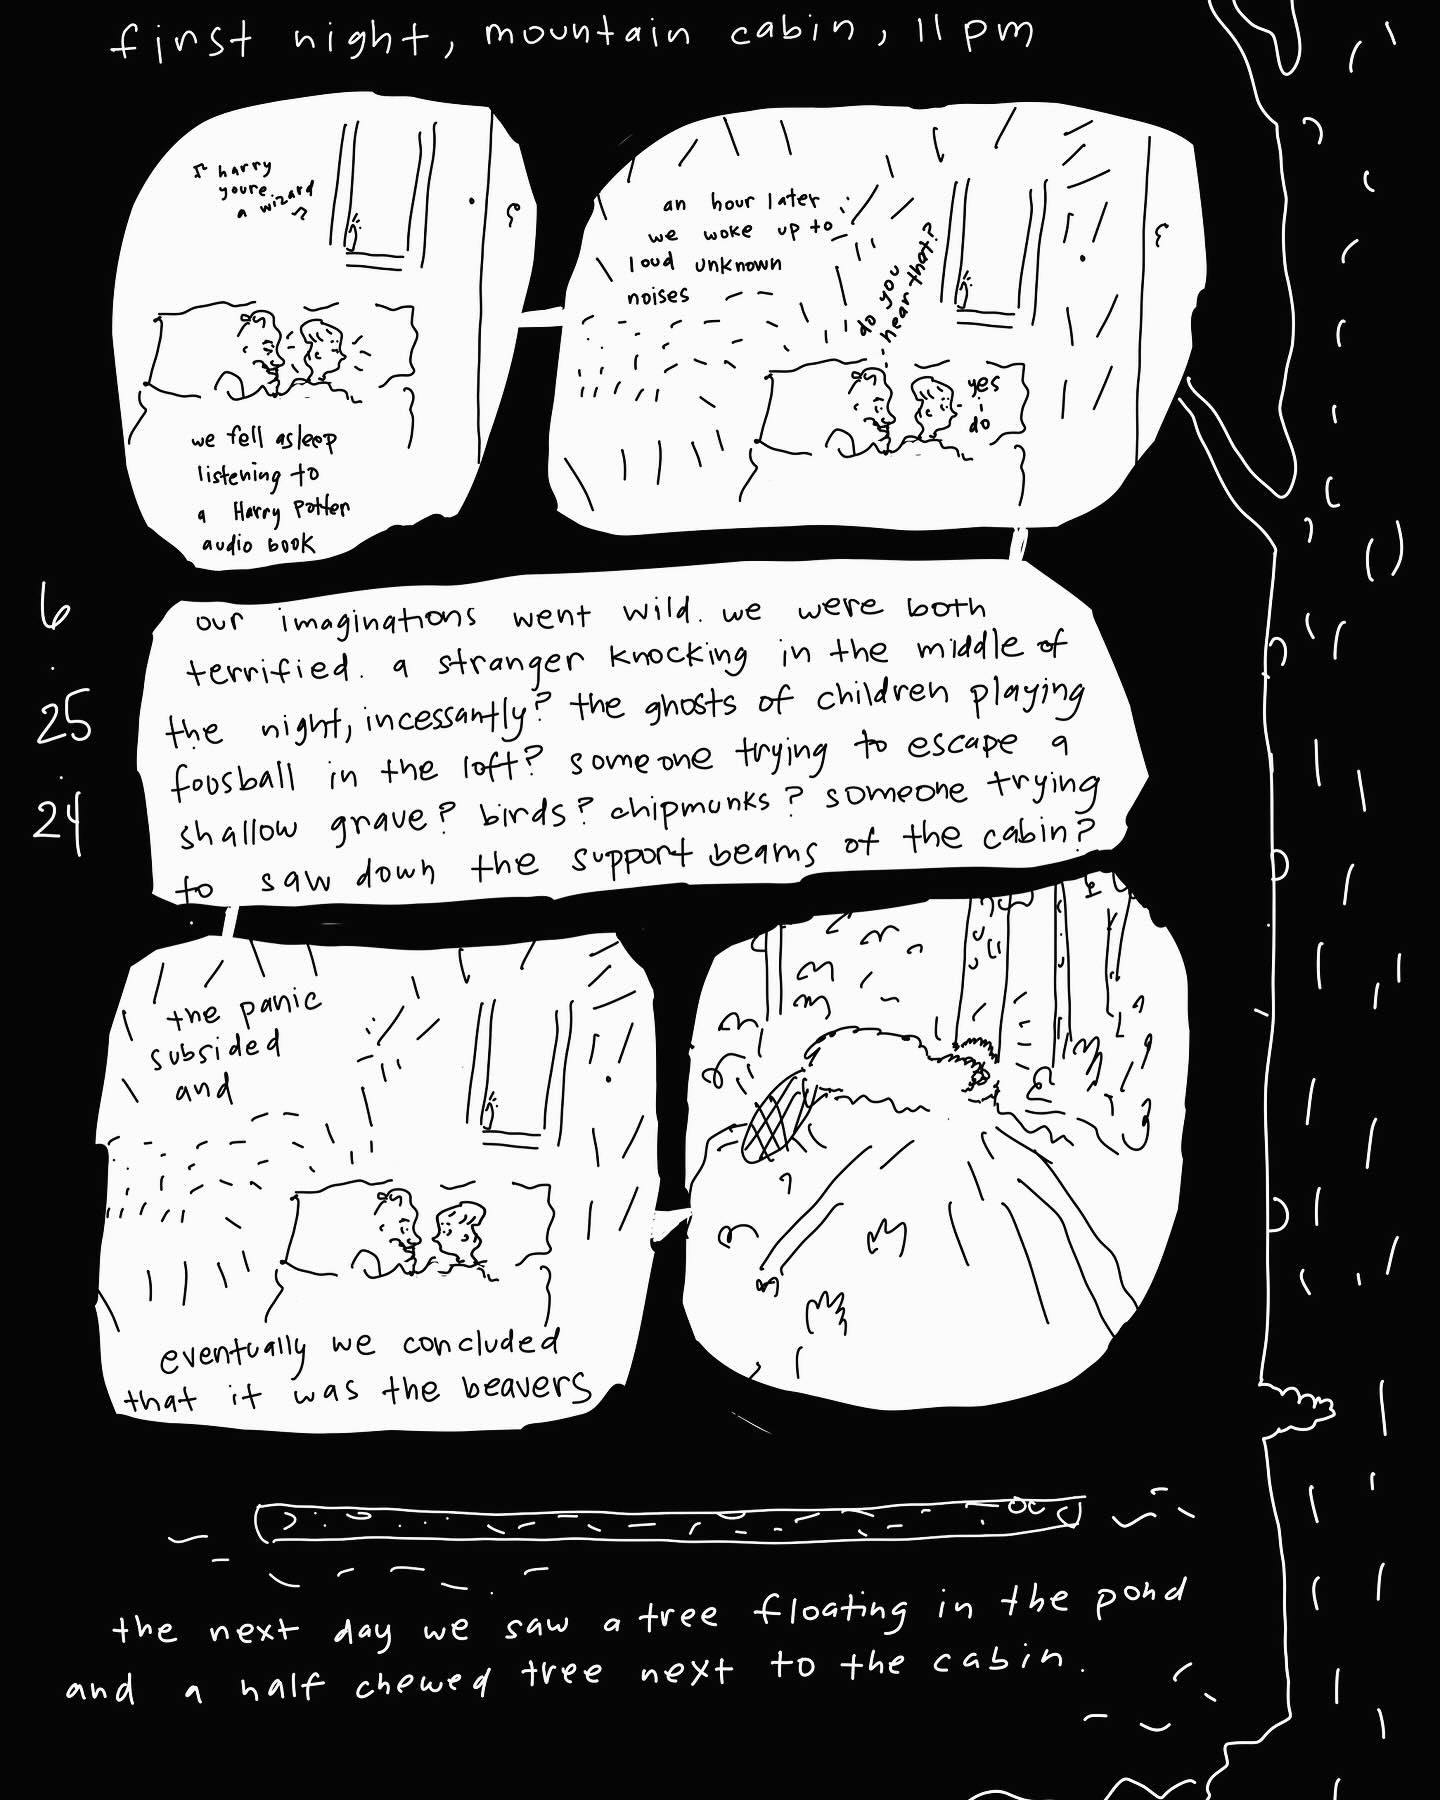 first night, mountain cabin, 11 pm
harry
youre
a wizard
we fell asleep
listening to
a Harry Potter
audio book
an hour later
we woke up to
loud unknown
noises
do you
hear that?
yes
i
do
6
.
25
.
24
our imaginations went wild. we were both
terrified. a stranger knocking in the middle of
the night, incessantly? the ghosts of children playing
foosball in the loft? someone trying to escape a
shallow grave? birds? chipmunks? someone trying
to saw down the support beams of the cabin?
the panic
subsided
and
eventually we concluded
that it was the beavers
the next day we saw a tree floating in the pond
and a half chewed tree next to the cabin.